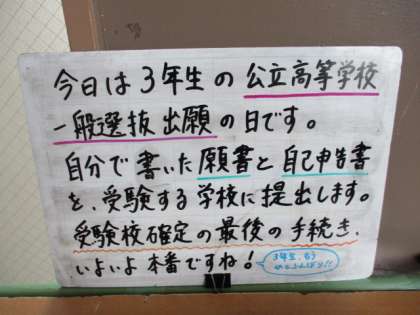 今日は3年生の公立高等学校
一般選抜出願の日です。
自分で書いた願書と自己申告書
を、受験する学校に提出します。
受験校確定の最後の手続き、
いよいよ本番ですね!
3年生、もう